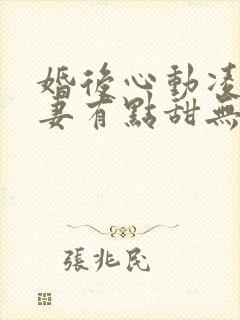 婚後心動凌
妻有點甜無
張兆民